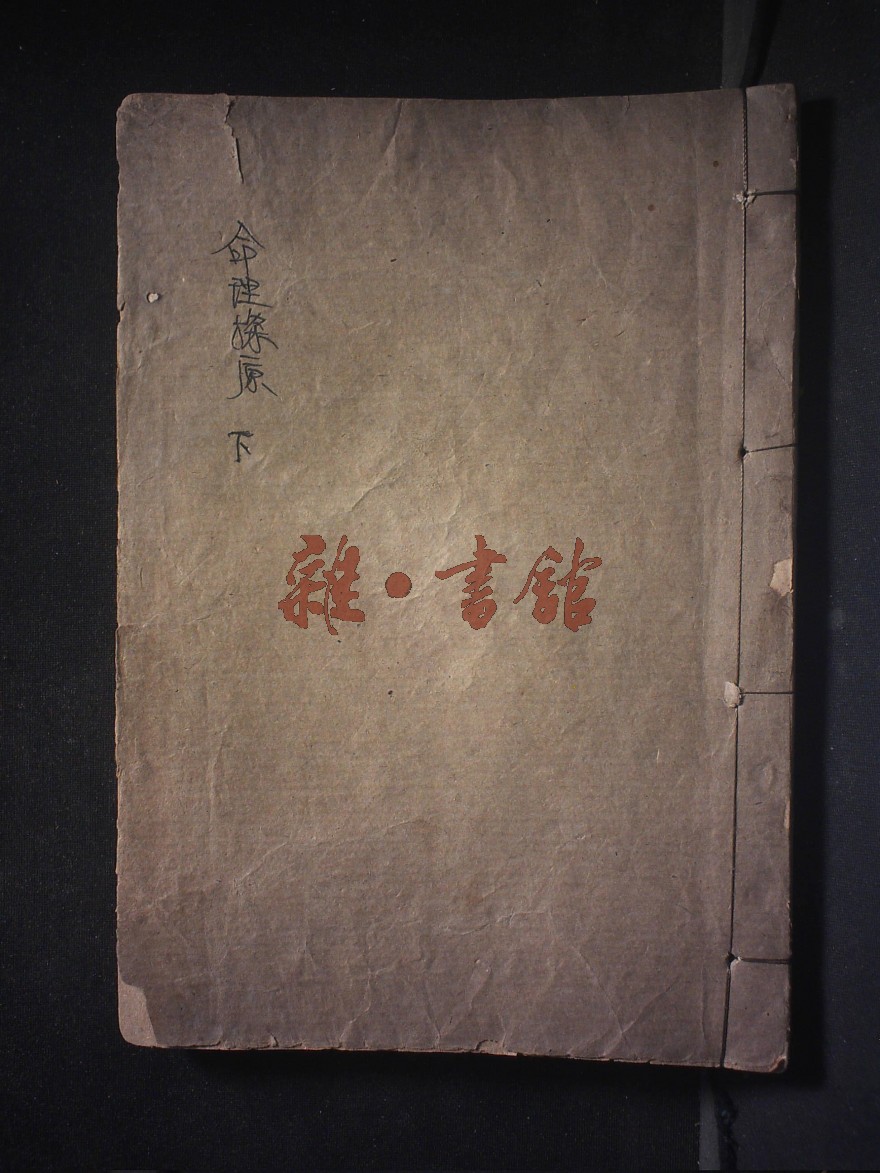 命理探原 下
雜·書館